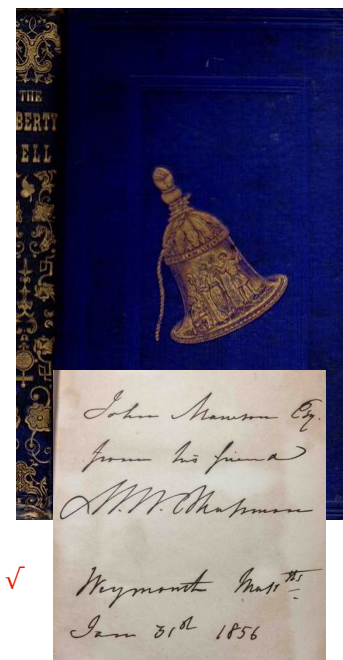 THE
BERTY
ELL
John Mawson Esq.
from his friend
M. W. Chapman
√
Weymouth Mass tts
Jan 31st 1856